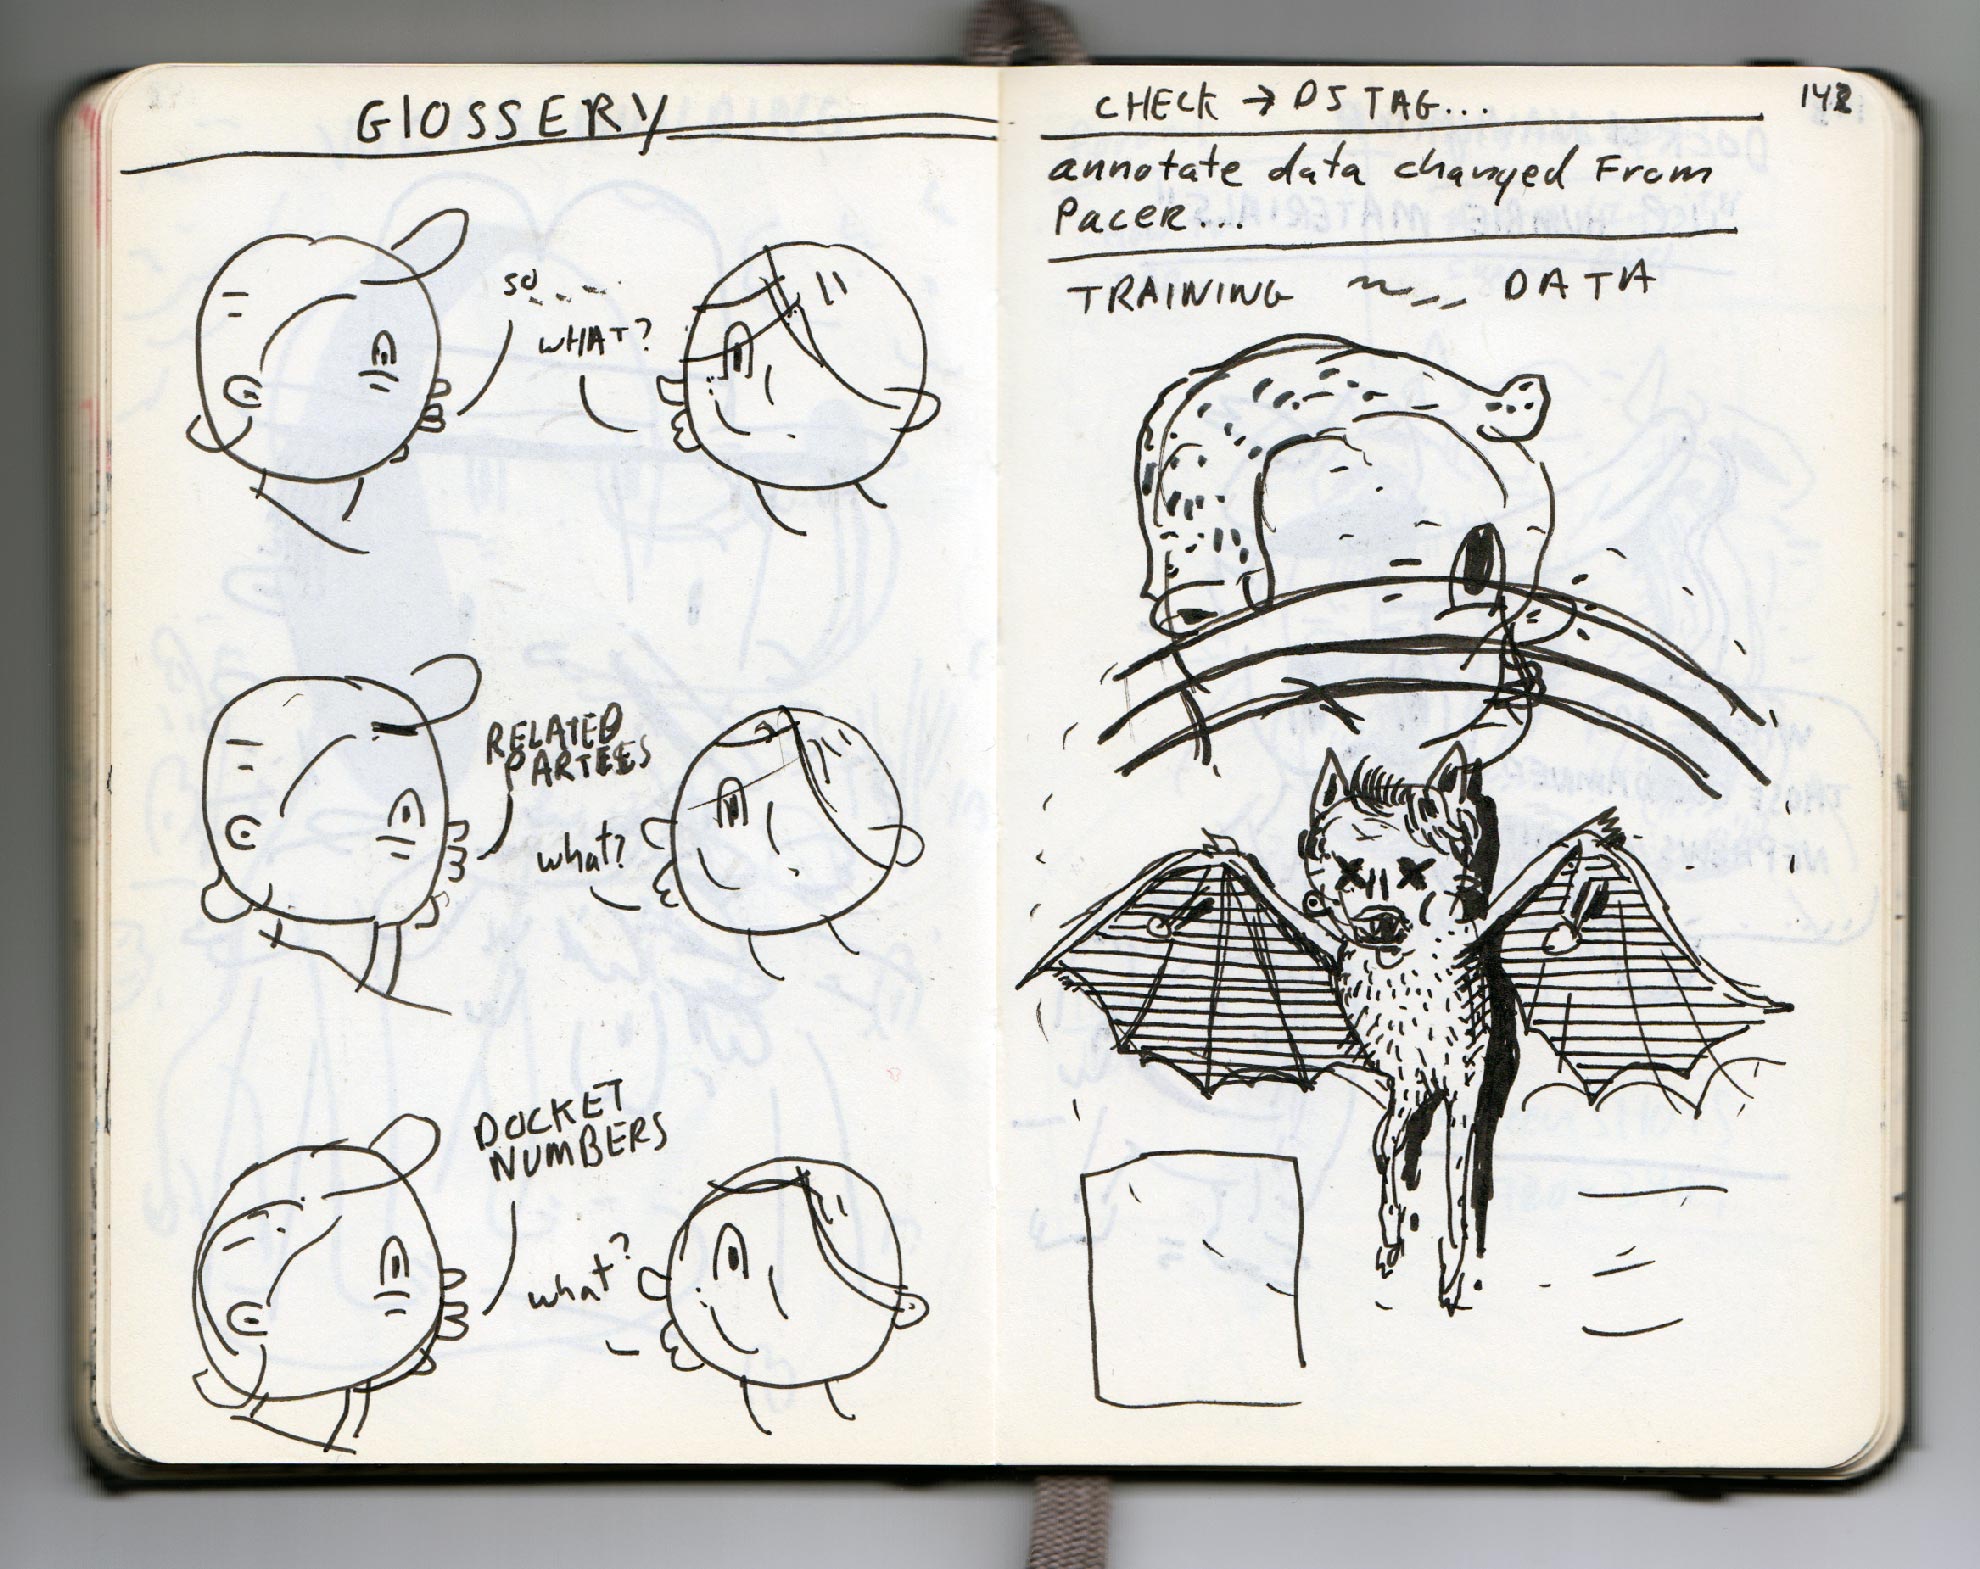 GlOSSERY
so....
WHAT?
RELATED
PARTEES
what?
DOCKET
NUMBERS
what?
CHECK → DS TAG...
142
annotate data changed From
Pacer...
TRAINING ~--- DATA